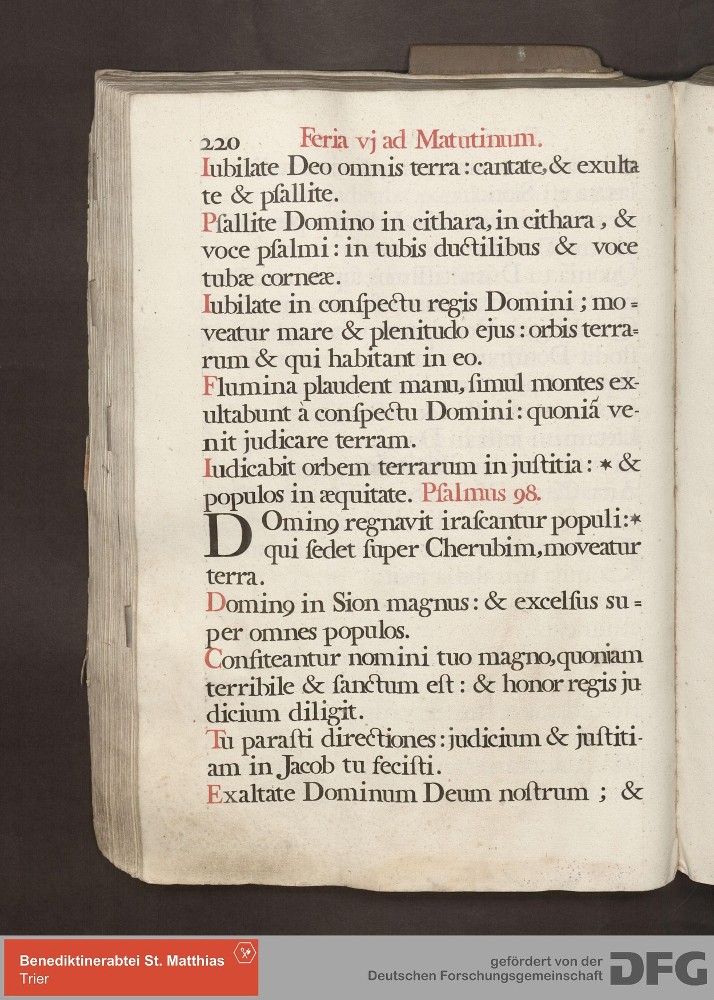 220 Feria vj ad Matutinum.
Iubilate Deo omnis terra: cantate, & exulta
te & pſallite.
Pſallite Domino in cithara, in cithara, &
voce pſalmi: in tubis ductilibus & voce
tubæ corneæ.
Iubilate in conſpectu regis Domini; mo=
veatur mare & plenitudo ejus: orbis terra=
rum & qui habitant in eo.
Flumina plaudent manu, ſimul montes ex-
ultabunt à conſpectu Domini: quoniã ve-
nit judicare terram.
Iudicabit orbem terrarum in juſtitia: * &
populos in æquitate. Pſalmus 98.
DOminꝰ regnavit iraſcantur populi:*
qui ſedet ſuper Cherubim, moveatur
terra.
Dominꝰ in Sion magnus: & excelſus su=
per omnes populos.
Confiteantur nomini tuo magno, quoniam
terribile & ſanctum eſt: & honor regis ju-
dicium diligit.
Tu paraſti directiones: judicium & juſtiti-
am in Jacob tu feciſti.
Exaltate Dominum Deum noſtrum; &
Benediktinerabtei St. Matthias
Trier
gefördert von der
Deutschen Forschungsgemeinschaft
DFG